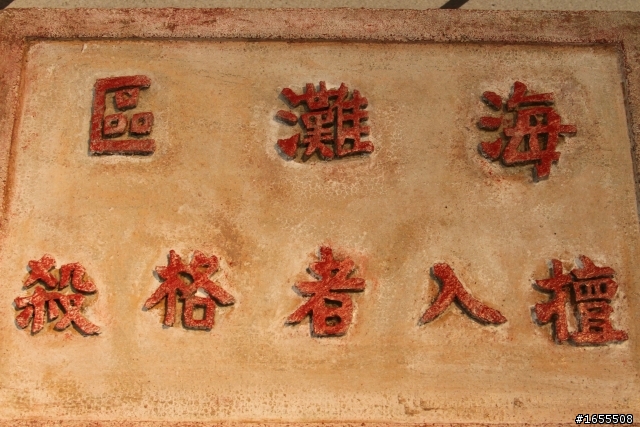 海灘區
檀入者格殺
#1655508